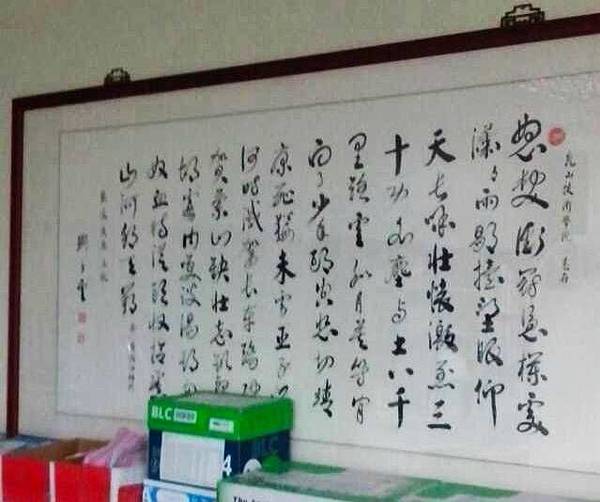 怒髮衝冠憑欄處
瀟々雨歇擡望眼仰
天長嘯壯懷激烈三
十功名塵與土八千
里路雲和月莫等閒
白了少年頭空悲切靖
康恥猶未雪臣子
何時滅駕長車踏破
賀蘭山缺壯志飢餐
胡虜肉笑談渴飲
奴血待從頭收拾舊
山河朝天闕
BLC
4